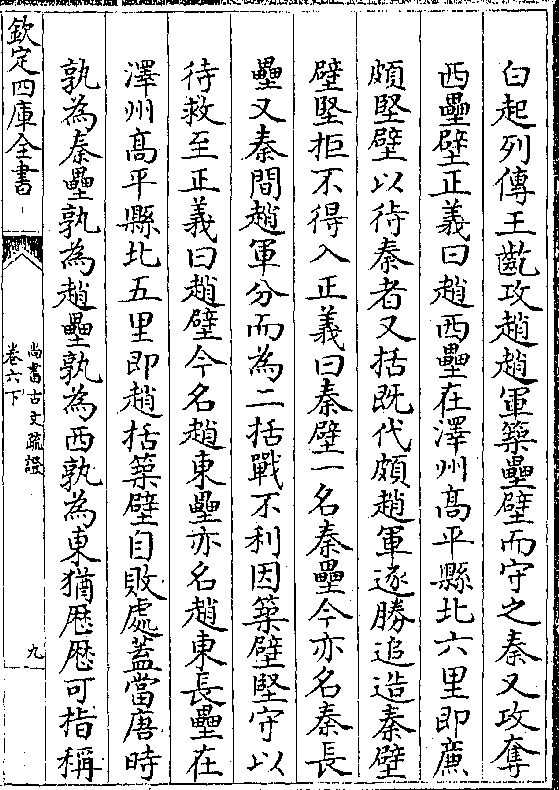 白起列傳王齕攻趙趙軍築壘壁而守之秦又攻奪
西壘壁正義曰趙西壘在澤州高平縣北六里即廉
頗堅壁以待秦者又括既代頗趙軍逐勝追造秦壁
壁堅拒不得入正義曰秦壁一名秦壘今亦名秦長
壘又秦間趙軍分而為二括戰不利因築壁堅守以
待救至正義曰趙壁今名趙東壘亦名趙東長壘在
澤州高平縣北五里即趙括築壁自敗處蓋當唐時
孰為秦壘孰為趙壘孰為西孰為東猶厯厯可指稱
欽定四庫全書
尚書古文疏證
卷六下
九